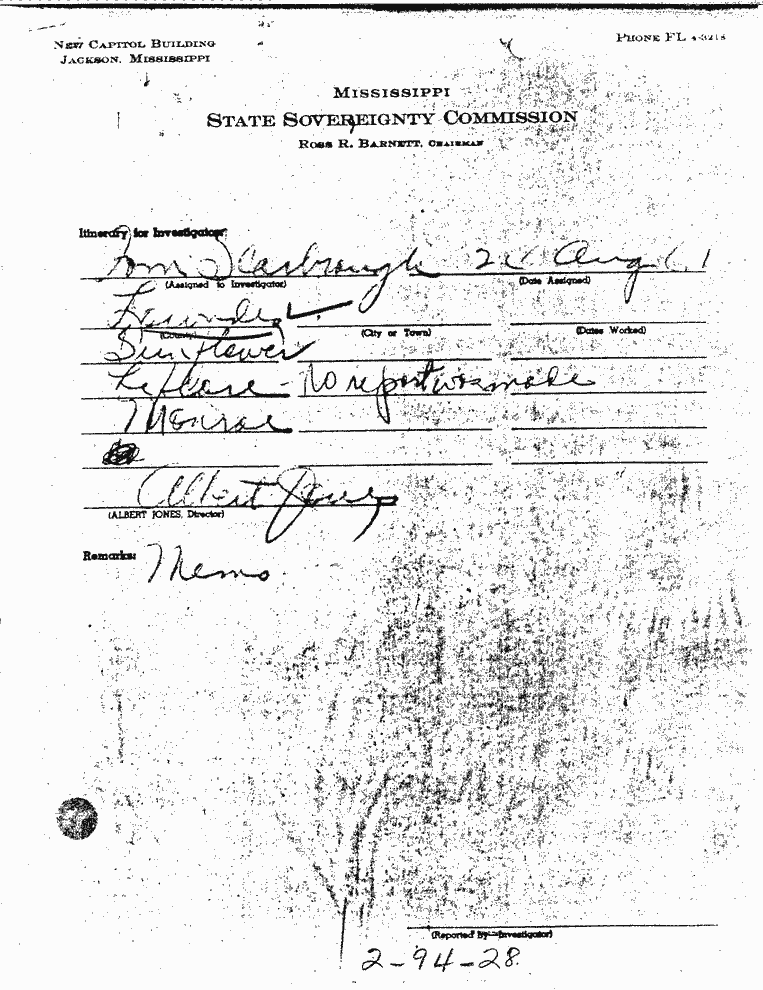 NEW CAPITOL BUILDING
JACKSON, MISSISSIPPI
PHONE FL 4-3218
MISSISSIPPI
STATE SOVEREIGNTY COMMISSION
ROSS R. BARNETT, CHAIRMAN
Itinerary for Investigator:
Tom Scarbrough Aug 61
(Assigned to Investigator) (Date Assigned)
Lowndes
(County) (City or Town) (Dates Worked)
Sunflower
Leflore - No report was made
Monroe
Albert Jones
(ALBERT JONES, Director)
Remarks: Memo
(Reported By—Investigator)
2-94-28